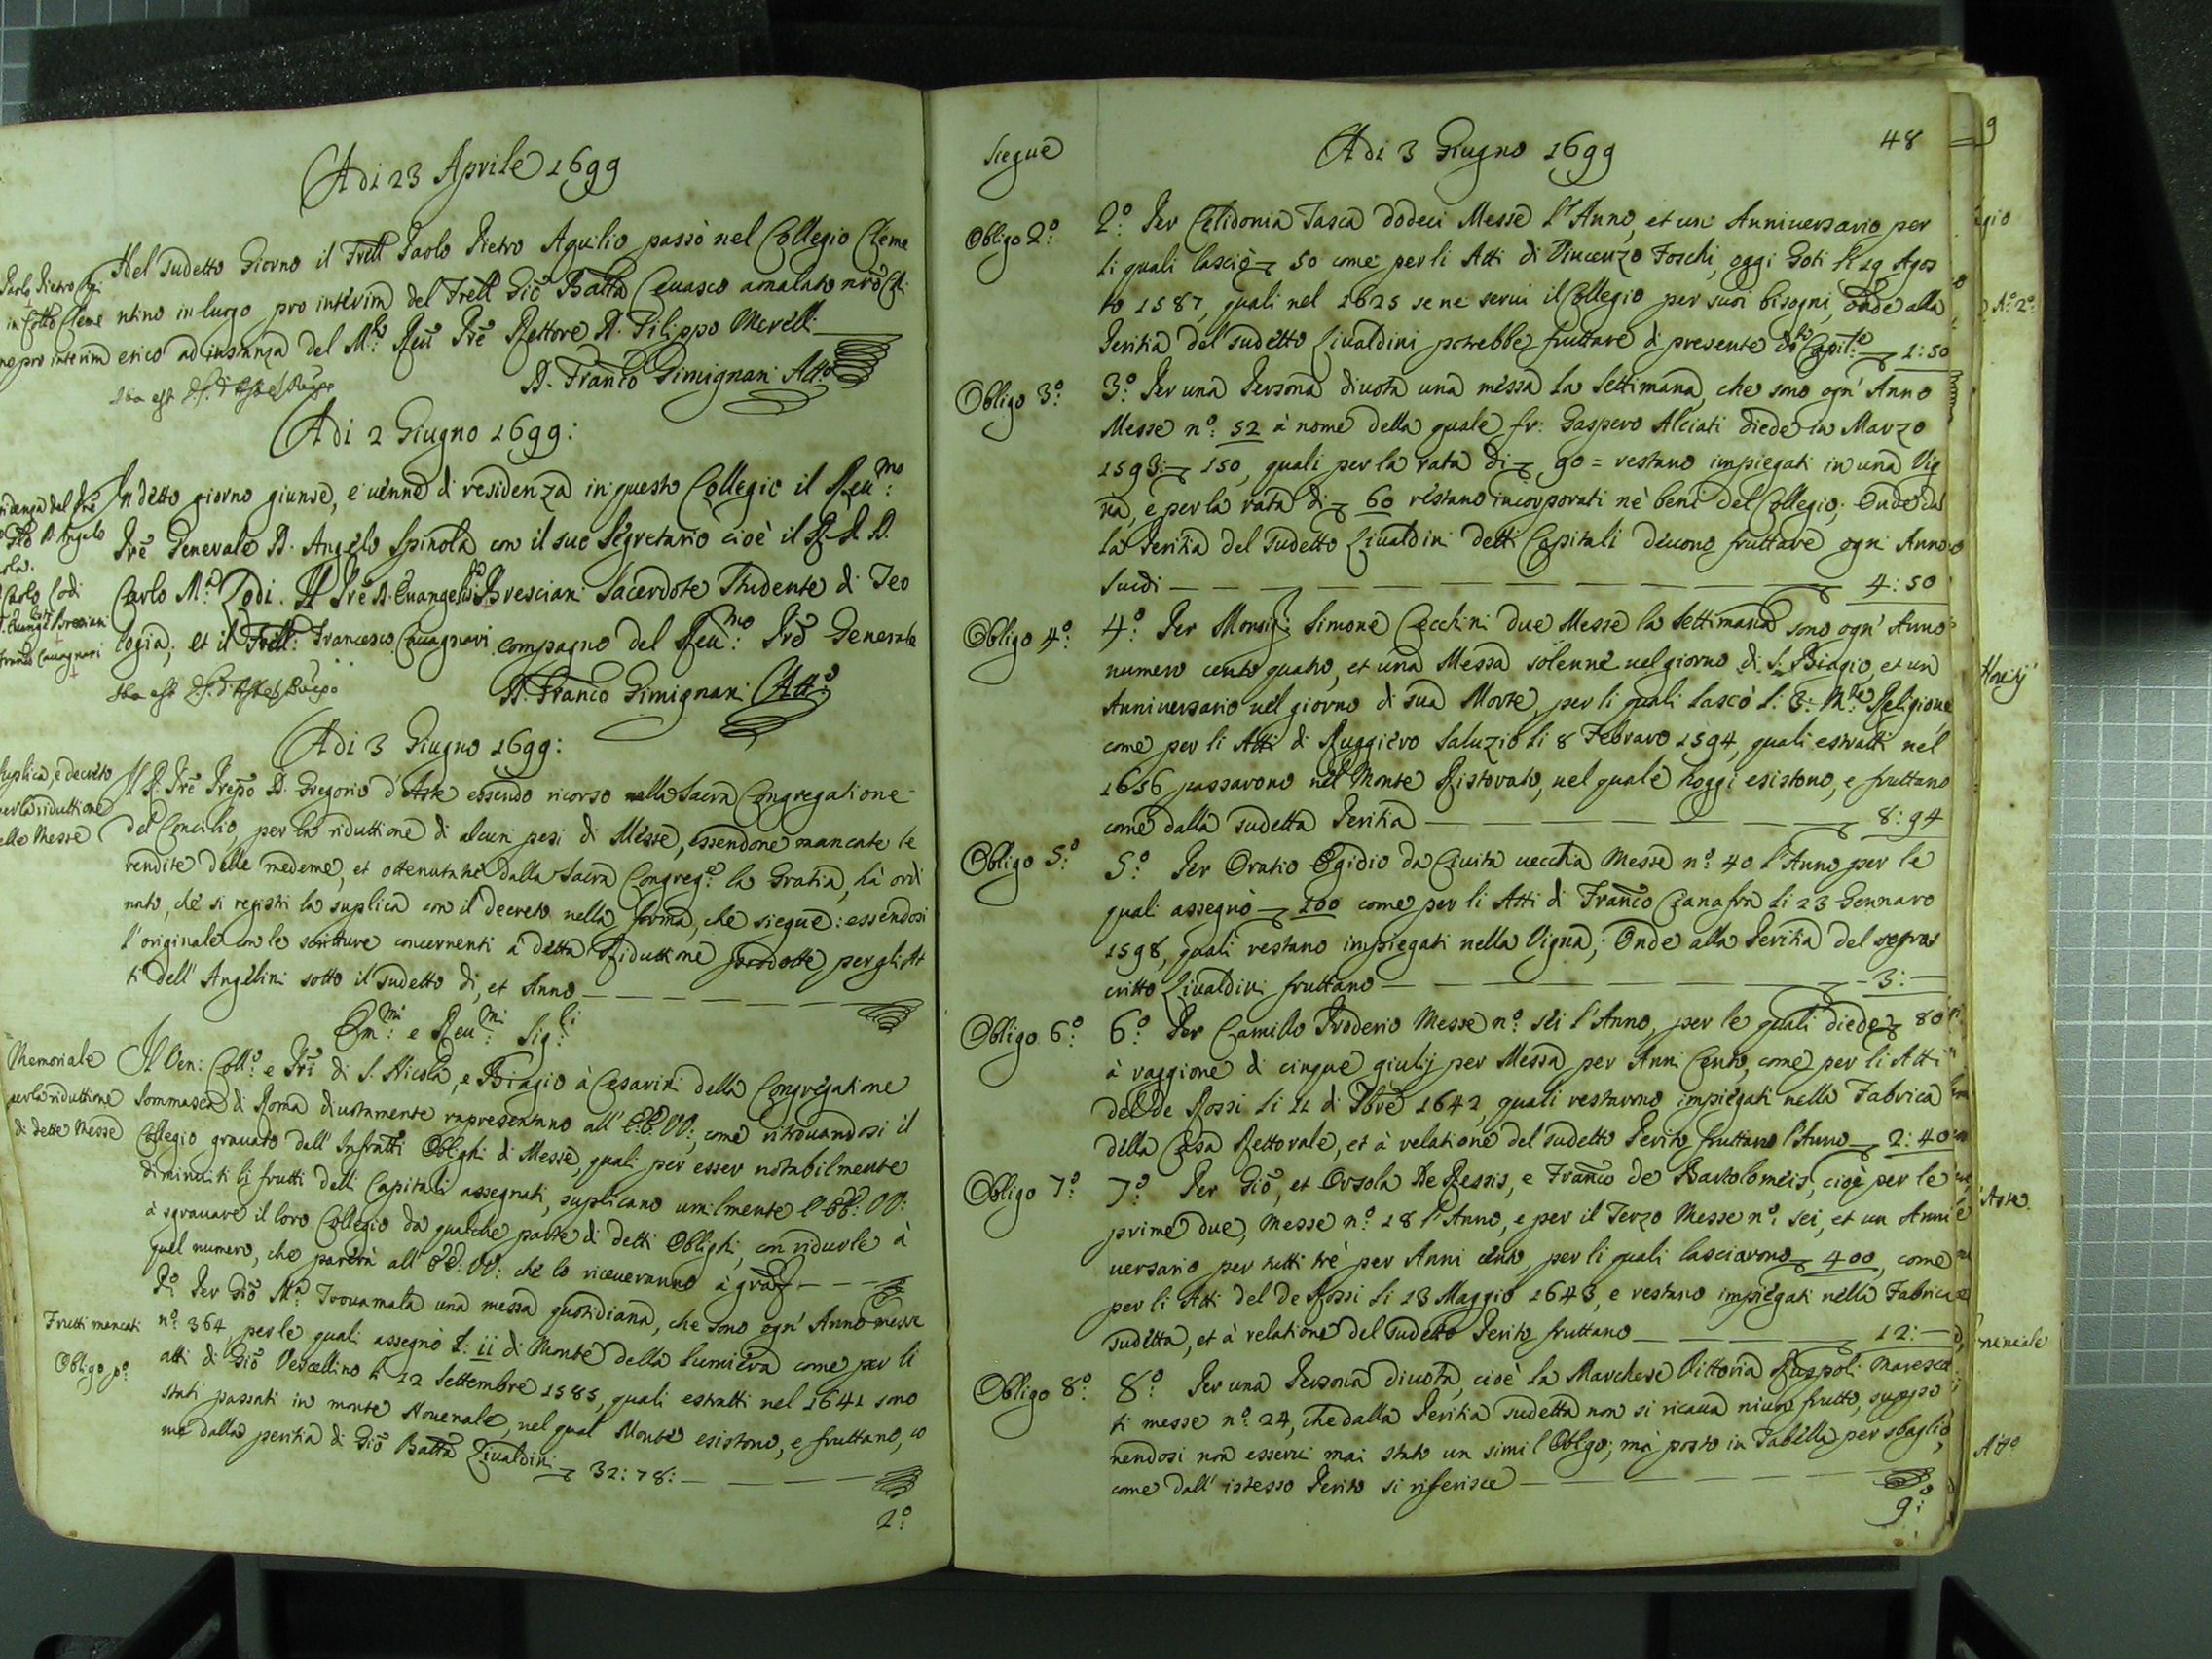 Adi 23 Aprile 1699
Paolo Pietro Aqui
in Collo Cleme
no pro interim
Nel sudetto Giorno il Frãll Paolo Pietro Aquilio passò nel Collegio Cleme
ntino in luogo pro interim del Frãll Gio Batta Ceuasco amalato nrõ
erico ad instanza del M.to Reu Prẽ Rettore D. Filippo Merelli
D. Franco Gimignani Atto
Ita est
Adi 2 Giugno 1699:
sidenza del Prẽ
D. Angelo
ola.
Carlo Lodi
Euangta Bresciani
Franco Cauagnari
In detto giorno giunse, e uenne di residenza in questo Collegio il Reu.mo
Prẽ Generale D. Angelo Spinola con il suo Segretario cioè il R. P. D.
Carlo M.a Lodi. Il Prẽ D. Euangelista Bresciani Sacerdote Studente di Teo
logia, et il Frell: Francesco Cauagnari compagno del Reu.mo Prẽ Generale
Ita est
D. Franco Gimignani Atto
Adi 3 Giugno 1699:
suplica, e decreto
per la riduttione
elle Messe
Il P. Prẽ Prepo D. Gregorio d'Aste essendo ricorso nella Sacra Congregatione
del Concilio, per la riduttione di alcuni pesi di Messe, essendone mancate le
rendite delle medeme, et ottenutane dalla Sacra Congreg.e la Gratia, hà ordi
nato, che si registri la suplica con il decreto nella forma, che siegue: essendosi
l'originale con le scritture concernenti a detta Riduttione prodotte per gli At
ti dell'Angelini sotto il sudetto di, et Anno
Em.mi e Reu.mi Sig.ri
Memoriale
per la riduttione
di dette Messe
Il Ven: Coll.o e Pri di S. Nicola, e Biagio à Cesarini della Congregatione
Sommasca di Roma diuotamente rapresentano all'E.E. VV: come ritrouandosi il
Collegio grauato dall'Infratti Oblighi di Messe, quali per esser notabilmente
diminuiti li frutti delli Capitali assegnati, suplicano umilmente l'EE: VV:
à sgrauare il loro Collegio da qualche parte di detti Oblighi, con ridurle à
quel numero, che parerà all'EE: VV: che lo riceueranno à graz
Frutti mancati
Obligo p.o
P.o Per Gio M.a Trouamala una messa quotidiana, che sono ogn'Anno messe
n.o 364, per le quali assegnò L: ii di Monte della Lumiera come per li
atti di Gio Vercellino li 12 Settembre 1585, quali estratti nel 1641 sono
stati passati in monte Nouenale, nel qual Monte esistono, e fruttano, co
me dalla peritia di Gio Batta Liualdini 32: 78:
2.o
siegue
Adi 3 Giugno 1699
48
Obligo 2.o
2.o Per Celidonia Tasca dodeci Messe l'Anno, et un Anniuersario per
li quali lasciò 50 come per li Atti di Vincenzo Foschi, oggi Goti li 19 Agos
to 1587, quali nel 1625 se ne serui il Collegio per suoi bisogni, onde alla
Peritia del sudetto Liualdini potrebbe fruttare di presente do Capitle 1: 50
Obligo 3.o
3.o Per una Persona diuota una messa la Settimana, che sono ogn'Anno
Messe n.o 52 à nome della quale fr: Gaspero Alciati diede in Marzo
1593: 150, quali per la rata di 90 = restano impiegati in una Vig
na, e per la rata di 60 restano incorporati nè beni del Collegio; Onde da
la Peritia del sudetto Liualdini detti Capitali deuono fruttare ogni Anno
scudi 4: 50
Obligo 4.o
4.o Per Monsig.r Simone Cecchini due Messe la Settimana sono ogn'Anno
numero cento quatro, et una Messa solenne nel giorno di S. Biagio, et un
Anniuersario nel giorno di sua Morte, per li quali lascò L: 3: M.te Religione
come per li Atti di Ruggiero Saluzio li 8 Febraro 1594, quali estratti nel
1656 passarono nel Monte Ristorato, nel quale hoggi esistono, e fruttano
come dalla sudetta Peritia 8: 94
Obligo 5.o
5.o Per Oratio Egidio da Ciuita uecchia Messe n.o 40 l'Anno per le
quali assegnò 100 come per li Atti di Franco Cianafra li 23 Gennaro
1598, quali restano impiegati nella Vigna; Onde alla Peritia del sopras
critto Liualdini fruttano 3: —
Obligo 6.o
6.o Per Camillo Proderio Messe n.o sei l'Anno, per le quali diede 80
à raggione di cinque giulij per Messa per Anni Cento, come per li Atti
del de Rossi li 11 di Xbre 1642, quali restarono impiegati nella Fabrica
della Casa Rettorale, et à relatione del sudetto Perito fruttano l'Anno 2: 40
Obligo 7.o
7.o Per Gio, et Orsola De Ressis, e Franco de Bartolomeis, cioè per le
prime due, Messe n.o 18 l'Anno, e per il Terzo Messe n.o sei, et un Anni
uersario per tutti trè per Anni cento, per li quali lasciarono 400, come
per li Atti del de Rossi li 13 Maggio 1643, e restano impiegati nella Fabrica
sudetta, et à relatione del sudetto Perito fruttano 12: —
Obligo 8.o
8.o Per una Persona diuota, cioè la Marchese Vittoria Ruspoli Marescot
ti messe n.o 24, che dalla Peritia sudetta non si ricaua niun frutto, suppo
nendosi non esserui mai stato un simil Obligo; mà posto in Tabella per sbaglio,
come dall'istesso Perito si riferisce
9.o